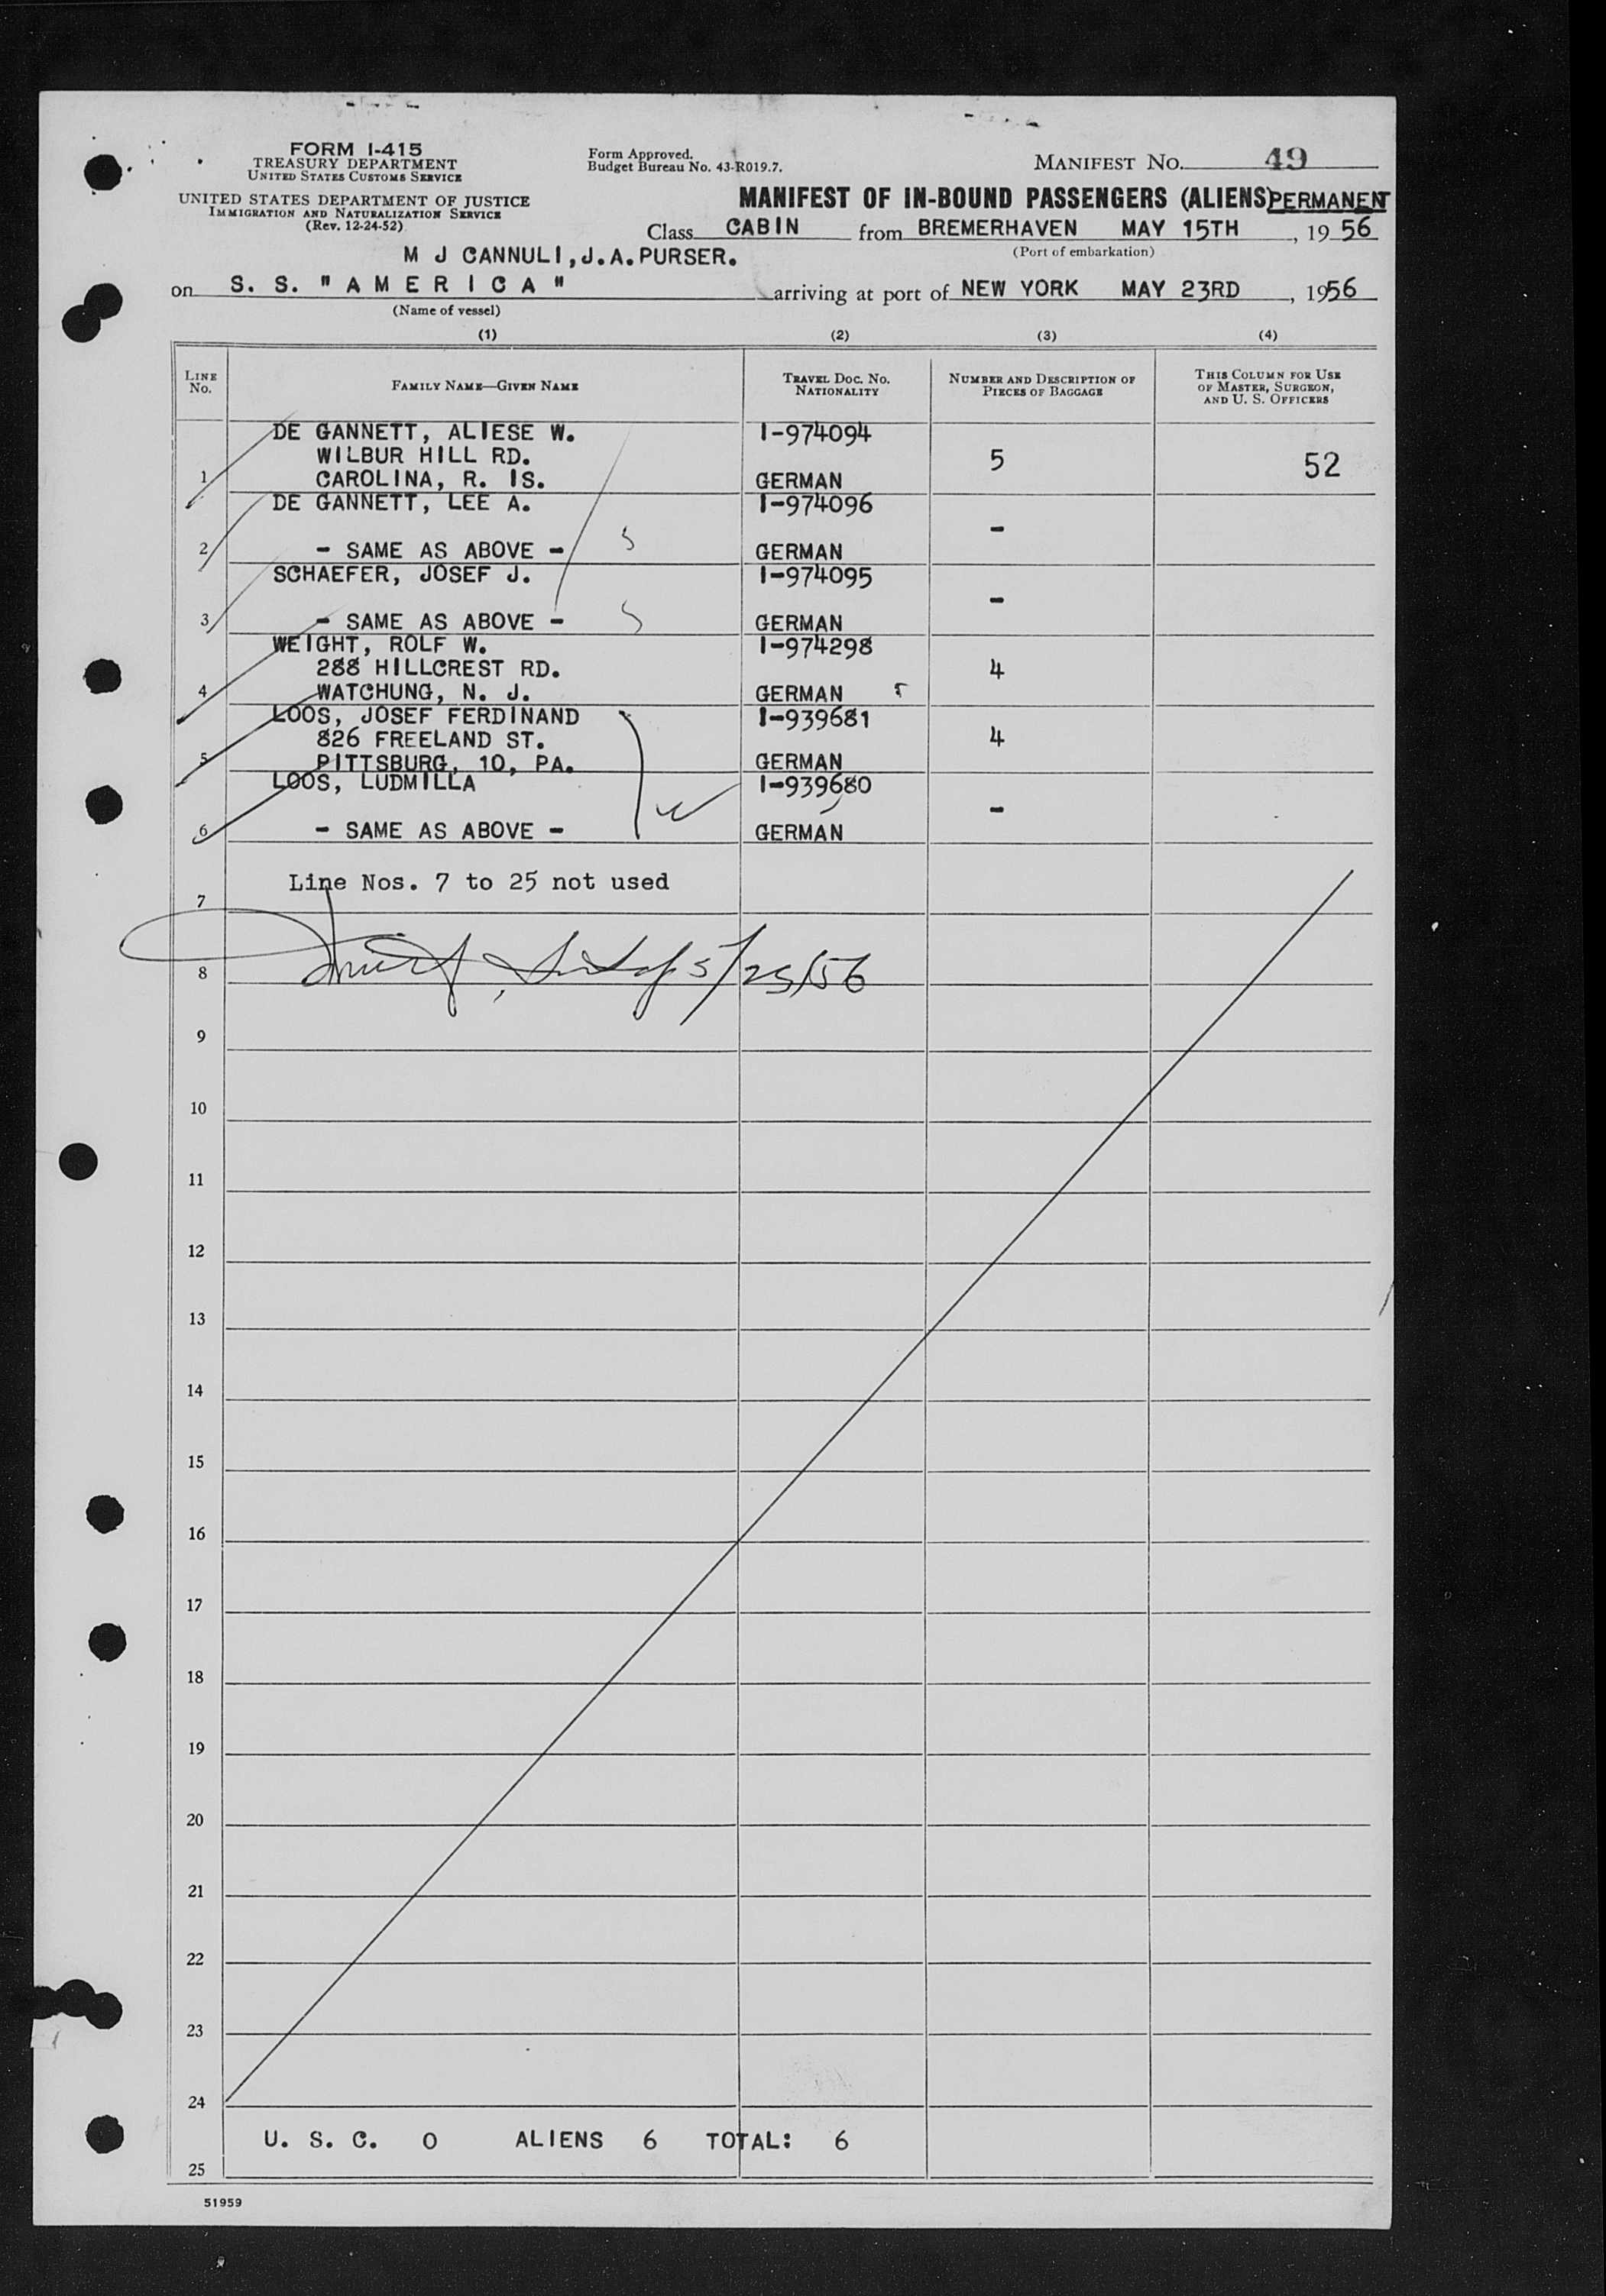 FORM I-415
TREASURY DEPARTMENT
UNITED STATES CUSTOMS SERVICE
UNITED STATES DEPARTMENT OF JUSTICE
IMMIGRATION AND NATURALIZATION SERVICE
(Rev. 12-24-52)
Form Approved.
Budget Bureau No. 43-R019.7.
MANIFEST NO. 49
MANIFEST OF IN-BOUND PASSENGERS (ALIENS) PERMANENT
Class CABIN from BREMERHAVEN MAY 15TH, 1956
(Port of embarkation)
M J CANNULI, J.A. PURSER.
on S. S. "AMERICA" arriving at port of NEW YORK MAY 23RD, 1956
(Name of vessel)
(1) (2) (3) (4)
LINE No. FAMILY NAME—GIVEN NAME TRAVEL DOC. NO. NATIONALITY NUMBER AND DESCRIPTION OF PIECES OF BAGGAGE THIS COLUMN FOR USE OF MASTER, SURGEON, AND U. S. OFFICERS
DE GANNETT, ALIESE W. I-974094
WILBUR HILL RD. 5 52
1 CAROLINA, R. IS. GERMAN
DE GANNETT, LEE A. I-974096
-
2 - SAME AS ABOVE - GERMAN
SCHAEFER, JOSEF J. I-974095
-
3 - SAME AS ABOVE - GERMAN
WEIGHT, ROLF W. I-974298
288 HILLCREST RD. 4
4 WATCHUNG, N. J. GERMAN
LOOS, JOSEF FERDINAND I-939681
826 FREELAND ST. 4
5 PITTSBURG, 10, PA. GERMAN
LOOS, LUDMILLA I-939680
-
6 - SAME AS ABOVE - GERMAN
Line Nos. 7 to 25 not used
7
8 5/23/56
9
10
11
12
13
14
15
16
17
18
19
20
21
22
23
24
U. S. C. 0 ALIENS 6 TOTAL: 6
25
51959